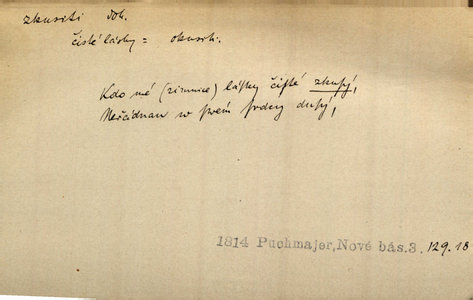 zkusiti dok.
čisté lásky = okusiti.
Kdo mé (zimnice) lásky čisté zkusý,
w swém srdcy dusý,
1814 Puchmajer, Nové bás.3. 129.18